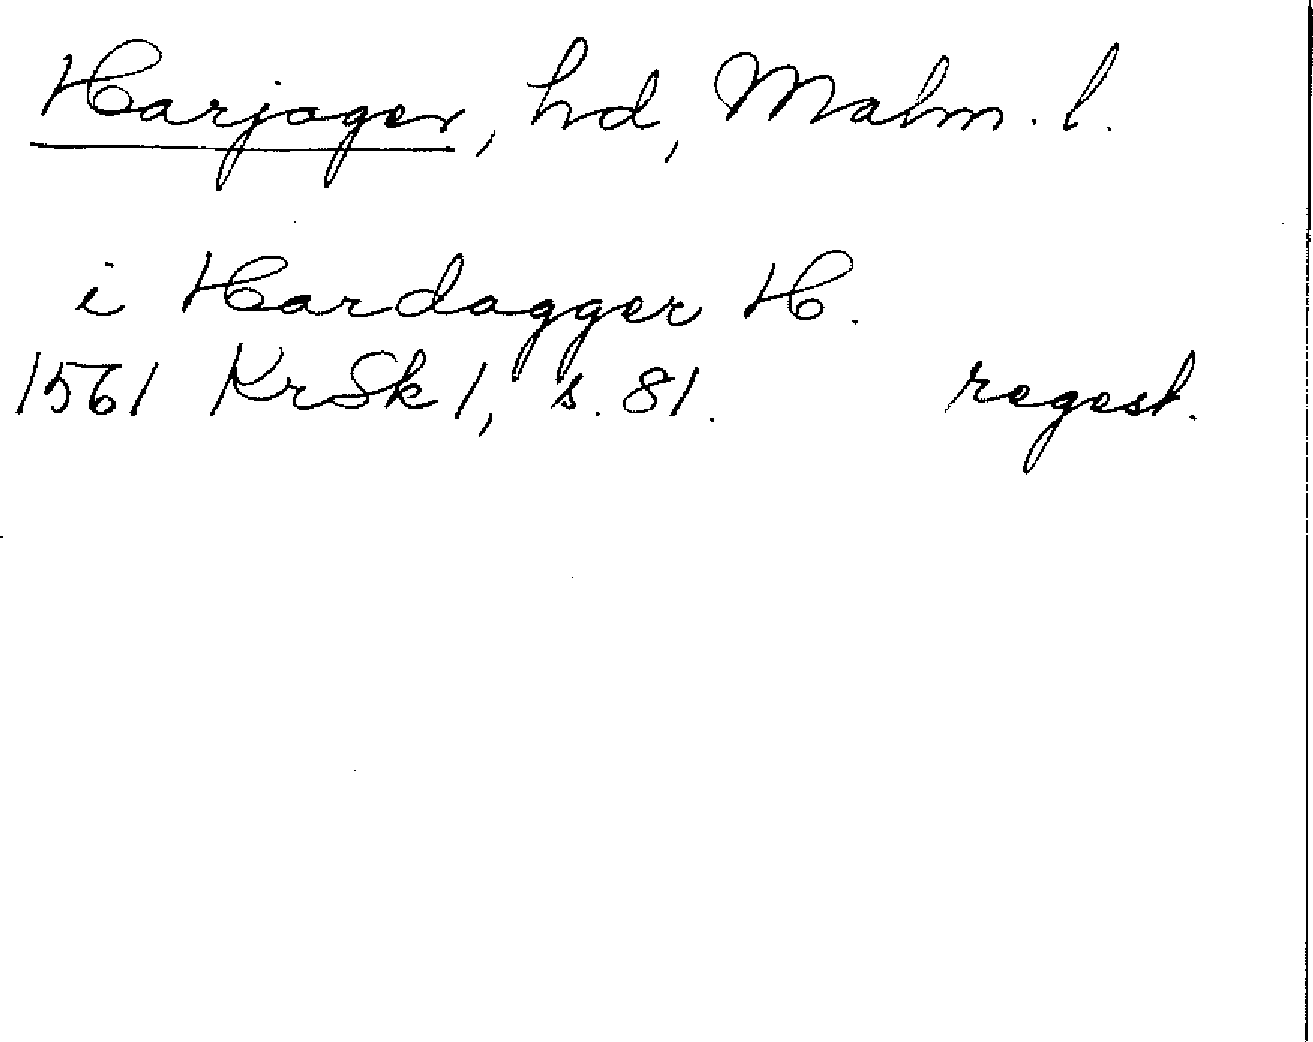 Harjager, hd, Malm. l.
i Hardagger H.
1561 KrSk 1, s. 81. regest.